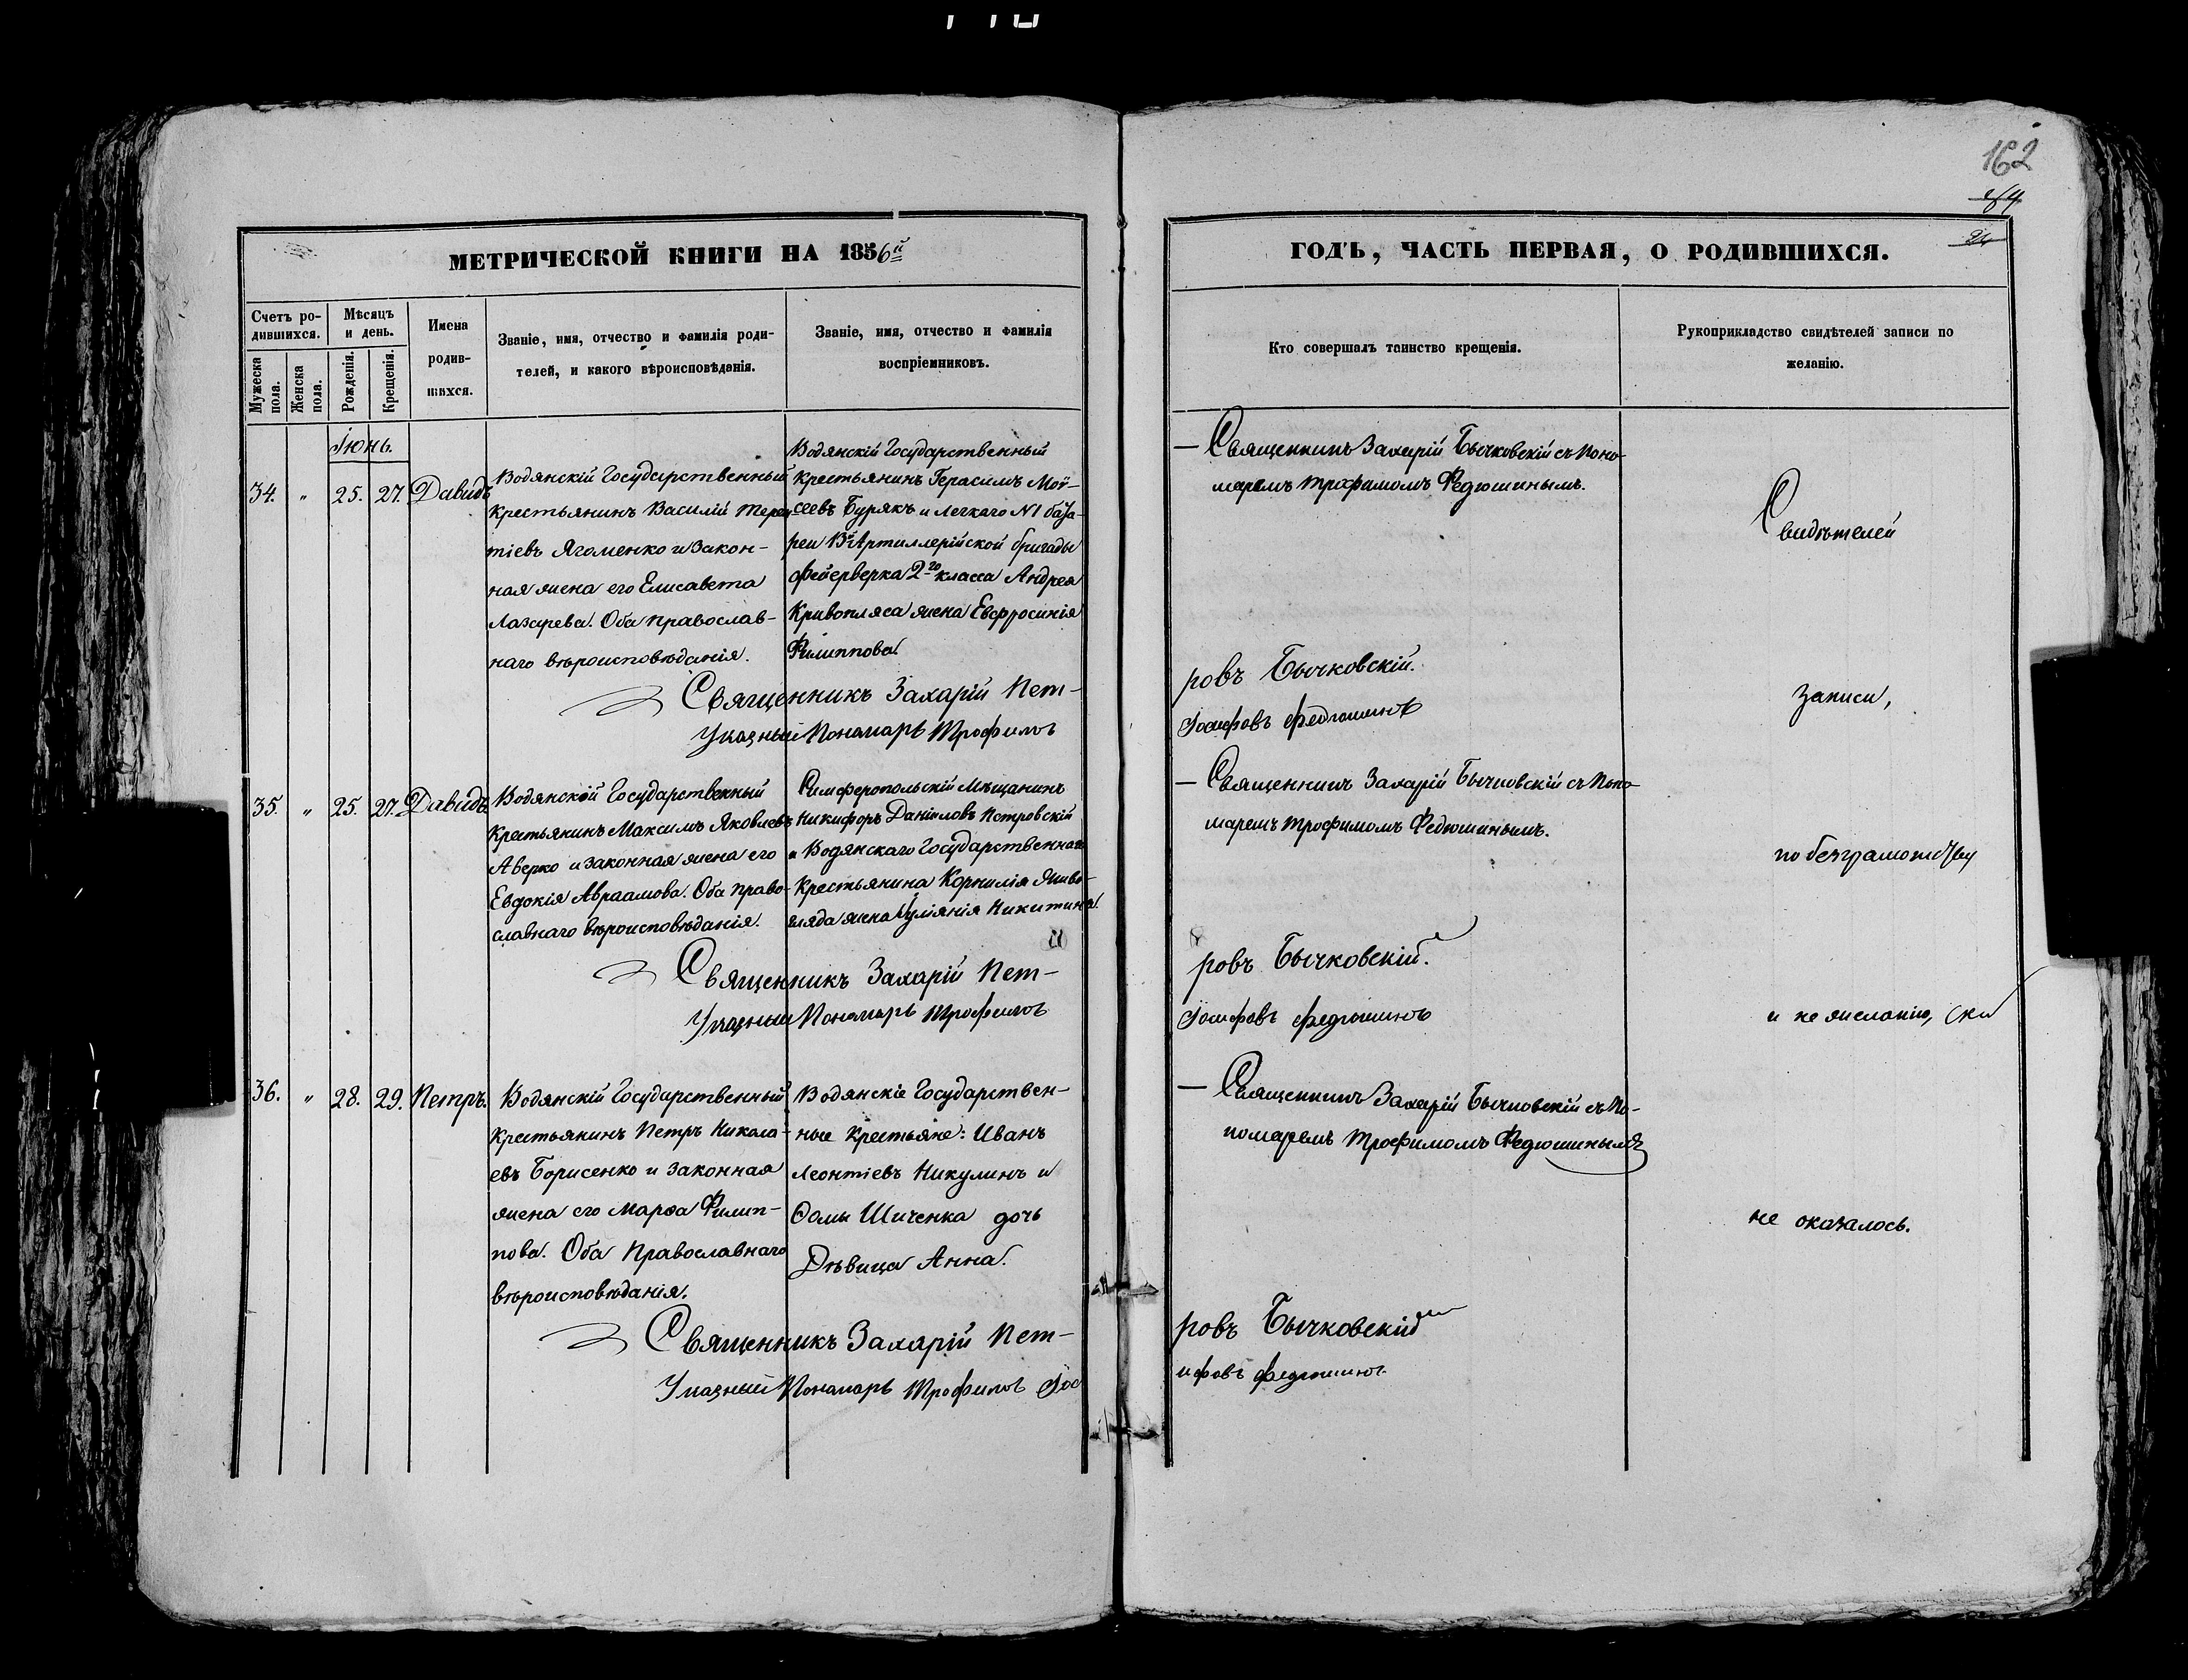 162
84
МЕТРИЧЕСКОЙ КНИГИ НА 1856й
ГОДЪ, ЧАСТЬ ПЕРВАЯ, О РОДИВШИХСЯ.
Счетъ ро-
дившихся.
Мужеска
пола.
Женска
пола.
Мѣсяцъ
и день.
Рожденія.
Крещенія.
Имена
родив-
шихся.
Званіе, имя, отчество и фамилія роди-
телей, и какого вѣроисповѣданія.
Званіе, имя, отчество и фамилія
воспріемниковъ.
Кто совершалъ таинство крещенія.
Рукоприкладство свидѣтелей записи по
желанію.
Іюнь.
34. " 25. 27. Давидъ
Водянскій Государственный
Крестьянинъ Василій Терен-
тіевъ Ягоменко и закон-
ная жена его Елисавета
Лазарева. Оба православ-
наго вѣроисповѣданія.
Водянскій Государственный
Крестьянинъ Герасимъ Мой-
сеевъ Бурякъ и Легкаго N1 бата-
реи Артиллерійской бригады
фейерверка 2го класса Андрея
Кривопляса жена Евфросинія
Филиппова
Священникъ Захарій Бычковскій съ Поно-
маремъ Трофимомъ Федюшинымъ.
Священникъ Захарій Пет-
ровъ Бычковскій.
Указный Пономарь Трофимъ
Іосифовъ Федюшинъ
35. " 25. 27. Давидъ
Водянской Государственный
Крестьянинъ Максимъ Яковлевъ
Аверко и законная жена его
Евдокія Авраамова. Оба право-
славнаго вѣроисповѣданія.
Симферопольскій Мѣщанинъ
Никифоръ Даніиловъ Петровскій
и Водянскаго Государственнаго
Крестьянина Корнилія Живо-
гляда жена Іуліянія Никитина.
Священникъ Захарій Бычковскій съ Поно-
маремъ Трофимомъ Федюшинымъ.
Священникъ Захарій Пет-
ровъ Бычковскій.
Указный Пономарь Трофимъ
Іосифовъ Федюшинъ
36. " 28. 29. Петръ.
Водянскій Государственный
Крестьянинъ Петръ Никола-
евъ Борисенко и законная
жена его Марѳа Филип-
пова. Оба Православнаго
вѣроисповѣданія.
Водянскіе Государствен-
ные Крестьяне: Иванъ
Леонтіевъ Никулинъ и
Ѳомы Шиченка дочь
Дѣвица Анна.
Священникъ Захарій Бычковскій съ По-
номаремъ Трофимомъ Федюшинымъ
Священникъ Захарій Пет-
ровъ Бычковскій
Указный Пономарь Трофимъ Іос
ифовъ Федюшинъ
Свидѣтелей
записи,
по безграмотству
и не желанію,
не оказалось.